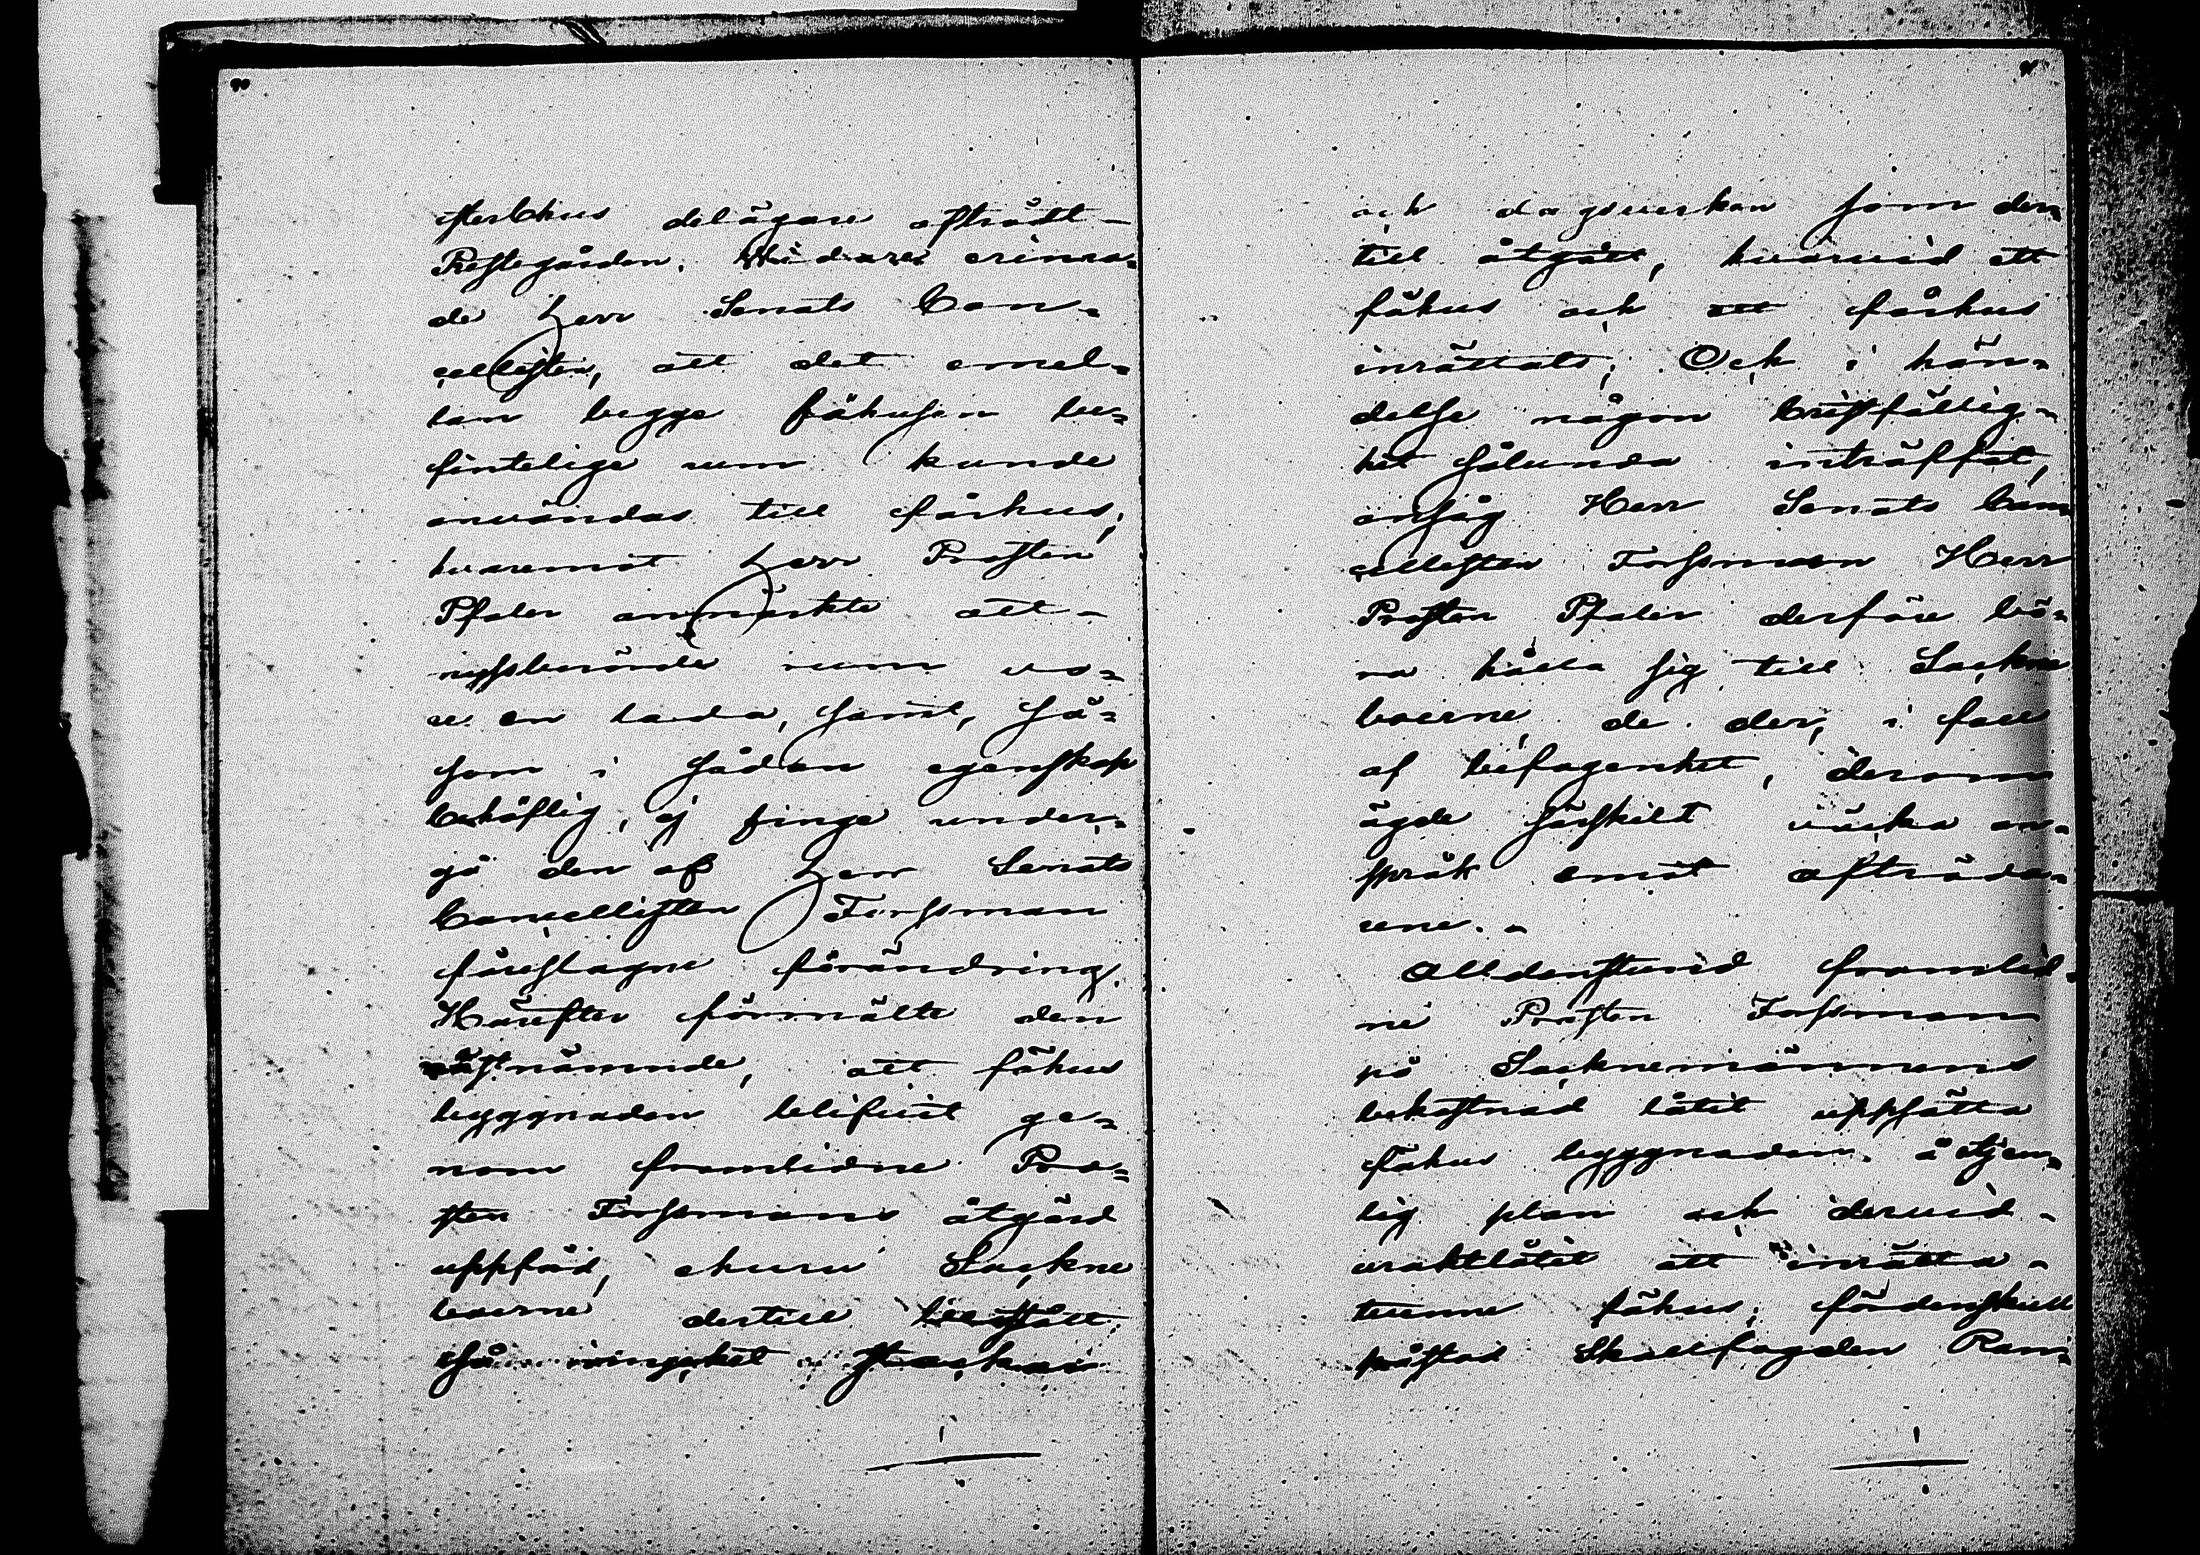 sterbhus delägare afträdt
Prestegården. Widare erinra-
de Herr Senats Can-
cellisten, att det emel-
lan begge fähusen be-
fintelige rum kunde
användas till fårhus,
hvaremot Herr Prosten
Pfaler anmärkte att
nyssberörde rum vo-
re en lada, samt, så-
som i sådan egenskap
behöflig, ej finge under-
gå den af Herr Senats
Cancellisten Forssman
föreslagne förändring.
Härefter förmälte den
sistnämnde, att fähus
byggnaden blifvit ge-
nom framlidne Pro-
sten Forssmans åtgärd
uppförd, ehuru Sockne
boerne dertill
så mycket
och dagsverken som der-
till åtgått, hvarvid ett
fähus och ett fårhus
inrättats; Och i hän-
delse någon bristfällig-
het sålunda inträffat,
ansåg Herr Senats Can-
cellisten Forssman Herr
Prosten Pfaler derföre bö-
ra hålla sig till Sockne
boerne, de der, i fall
af befogenhet, derom
ägde särskilt väcka an-
språk emot afträda-
rene.
Alldenstund framlid-
ne Prosten Forssman
på Socknemännens
bekostnad låtit uppsätta
fähus byggnaden å tjen-
lig plan och dervid
uraktlåtit att inrätta
tvenne fähus, fördenskull
påstod Skallfogden Ran-